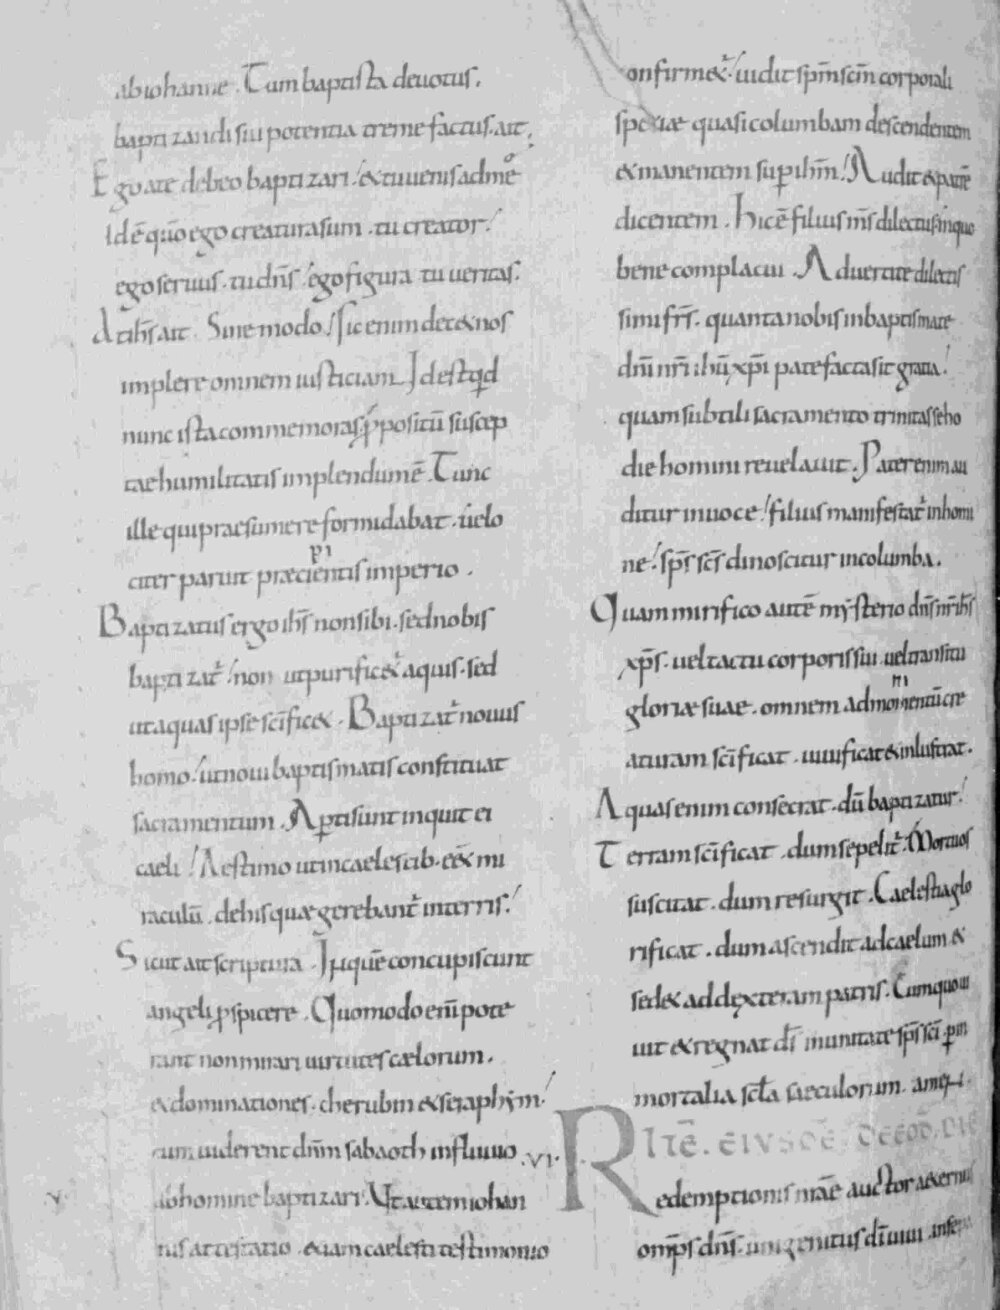 abiohanne. Tum baptista deuotus.
baptizandi siu potentia tremefactus. ait;
Ego ate debeo baptizari! & tu uenis ad me
Idē quō ego creatura sum. tu creator!
ego seruus. tu dn̄s! ego figura tu ueritas.
At ih̄s ait. Sine modo! sic enim dec& nos
implere omnem iusticiam. Id est qd
nunc ista commemoras ꝓpositū suscep
tae humilitatis implendum ē. Tunc
ille qui praesumere formidabat. uelo
pi
citer paruit præcientis imperio.
Baptizatus ergo ih̄s non sibi. sed nobis
baptizat̄! non ut purific&̄ aquis. sed
ut aquas ipse sc̄ific&. Baptizat̄ nouus
homo! ut noui baptismatis constituat
sacramentum. Aꝑti sunt inquit ei
caeli! Aestimo ut in caelestib. e&̄ mi
raculū. de his quæ gerebant̄ in terris!
Sicut ait scriptura. In quē concupiscunt
angeli ꝓspicere. Quomodo enī pote
rant non mirari uirtutes cælorum.
& dominationes. cherubin & seraphym!
cum uiderent dn̄m sabaoth in fluuio
ab homine baptizari! Ut autem iohan
nis attestatio. &iam caelesti testimonio
onfirm&̄! uidit sp̄m sc̄m corporali
speciæ quasi columbam descendentem
& manentem suꝑ ih̄m! Audit & patrē
dicentem. hic ē filius m̄s dilectus in quo
bene complacui. Aduertite dilectis
simi fr̄s. quanta nobis in baptismate
dn̄i nr̄i ihū xp̄i patefacta sit gratia!
quam subtili sacramento trinitas se ho
die homini reuelauit. Pater enim au
ditur in uoce! filius manifestat̄ in homi
ne! sp̄s sc̄s dinoscitur in columba.
Quam mirifico autē mysterio dn̄s nr̄ ih̄s
xp̄s. uel tactu corporis sui uel transitu
ni
gloriæ suae. omnem ad momentū cre
aturam sc̄ificat. uiuificat & inlustrat.
Aquas enim consecrat. dū baptizatur!
Terram sc̄ificat. dum sepelit̄. Mortuos
suscitat. dum resurgit. Caelestia glo
rificat. dum ascendit ad caelum &
sed& ad dexteram patris. Cum quo ui
uit & regnat dī in unitate sp̄s sc̄i. ꝑ in
mortalia sc̄la saeculorum. amen.
Itē. eiusdē.
.VI. Redemptionis nr̄ae auctor aeternus
omp̄s dn̄s. unigenitus dī uiui